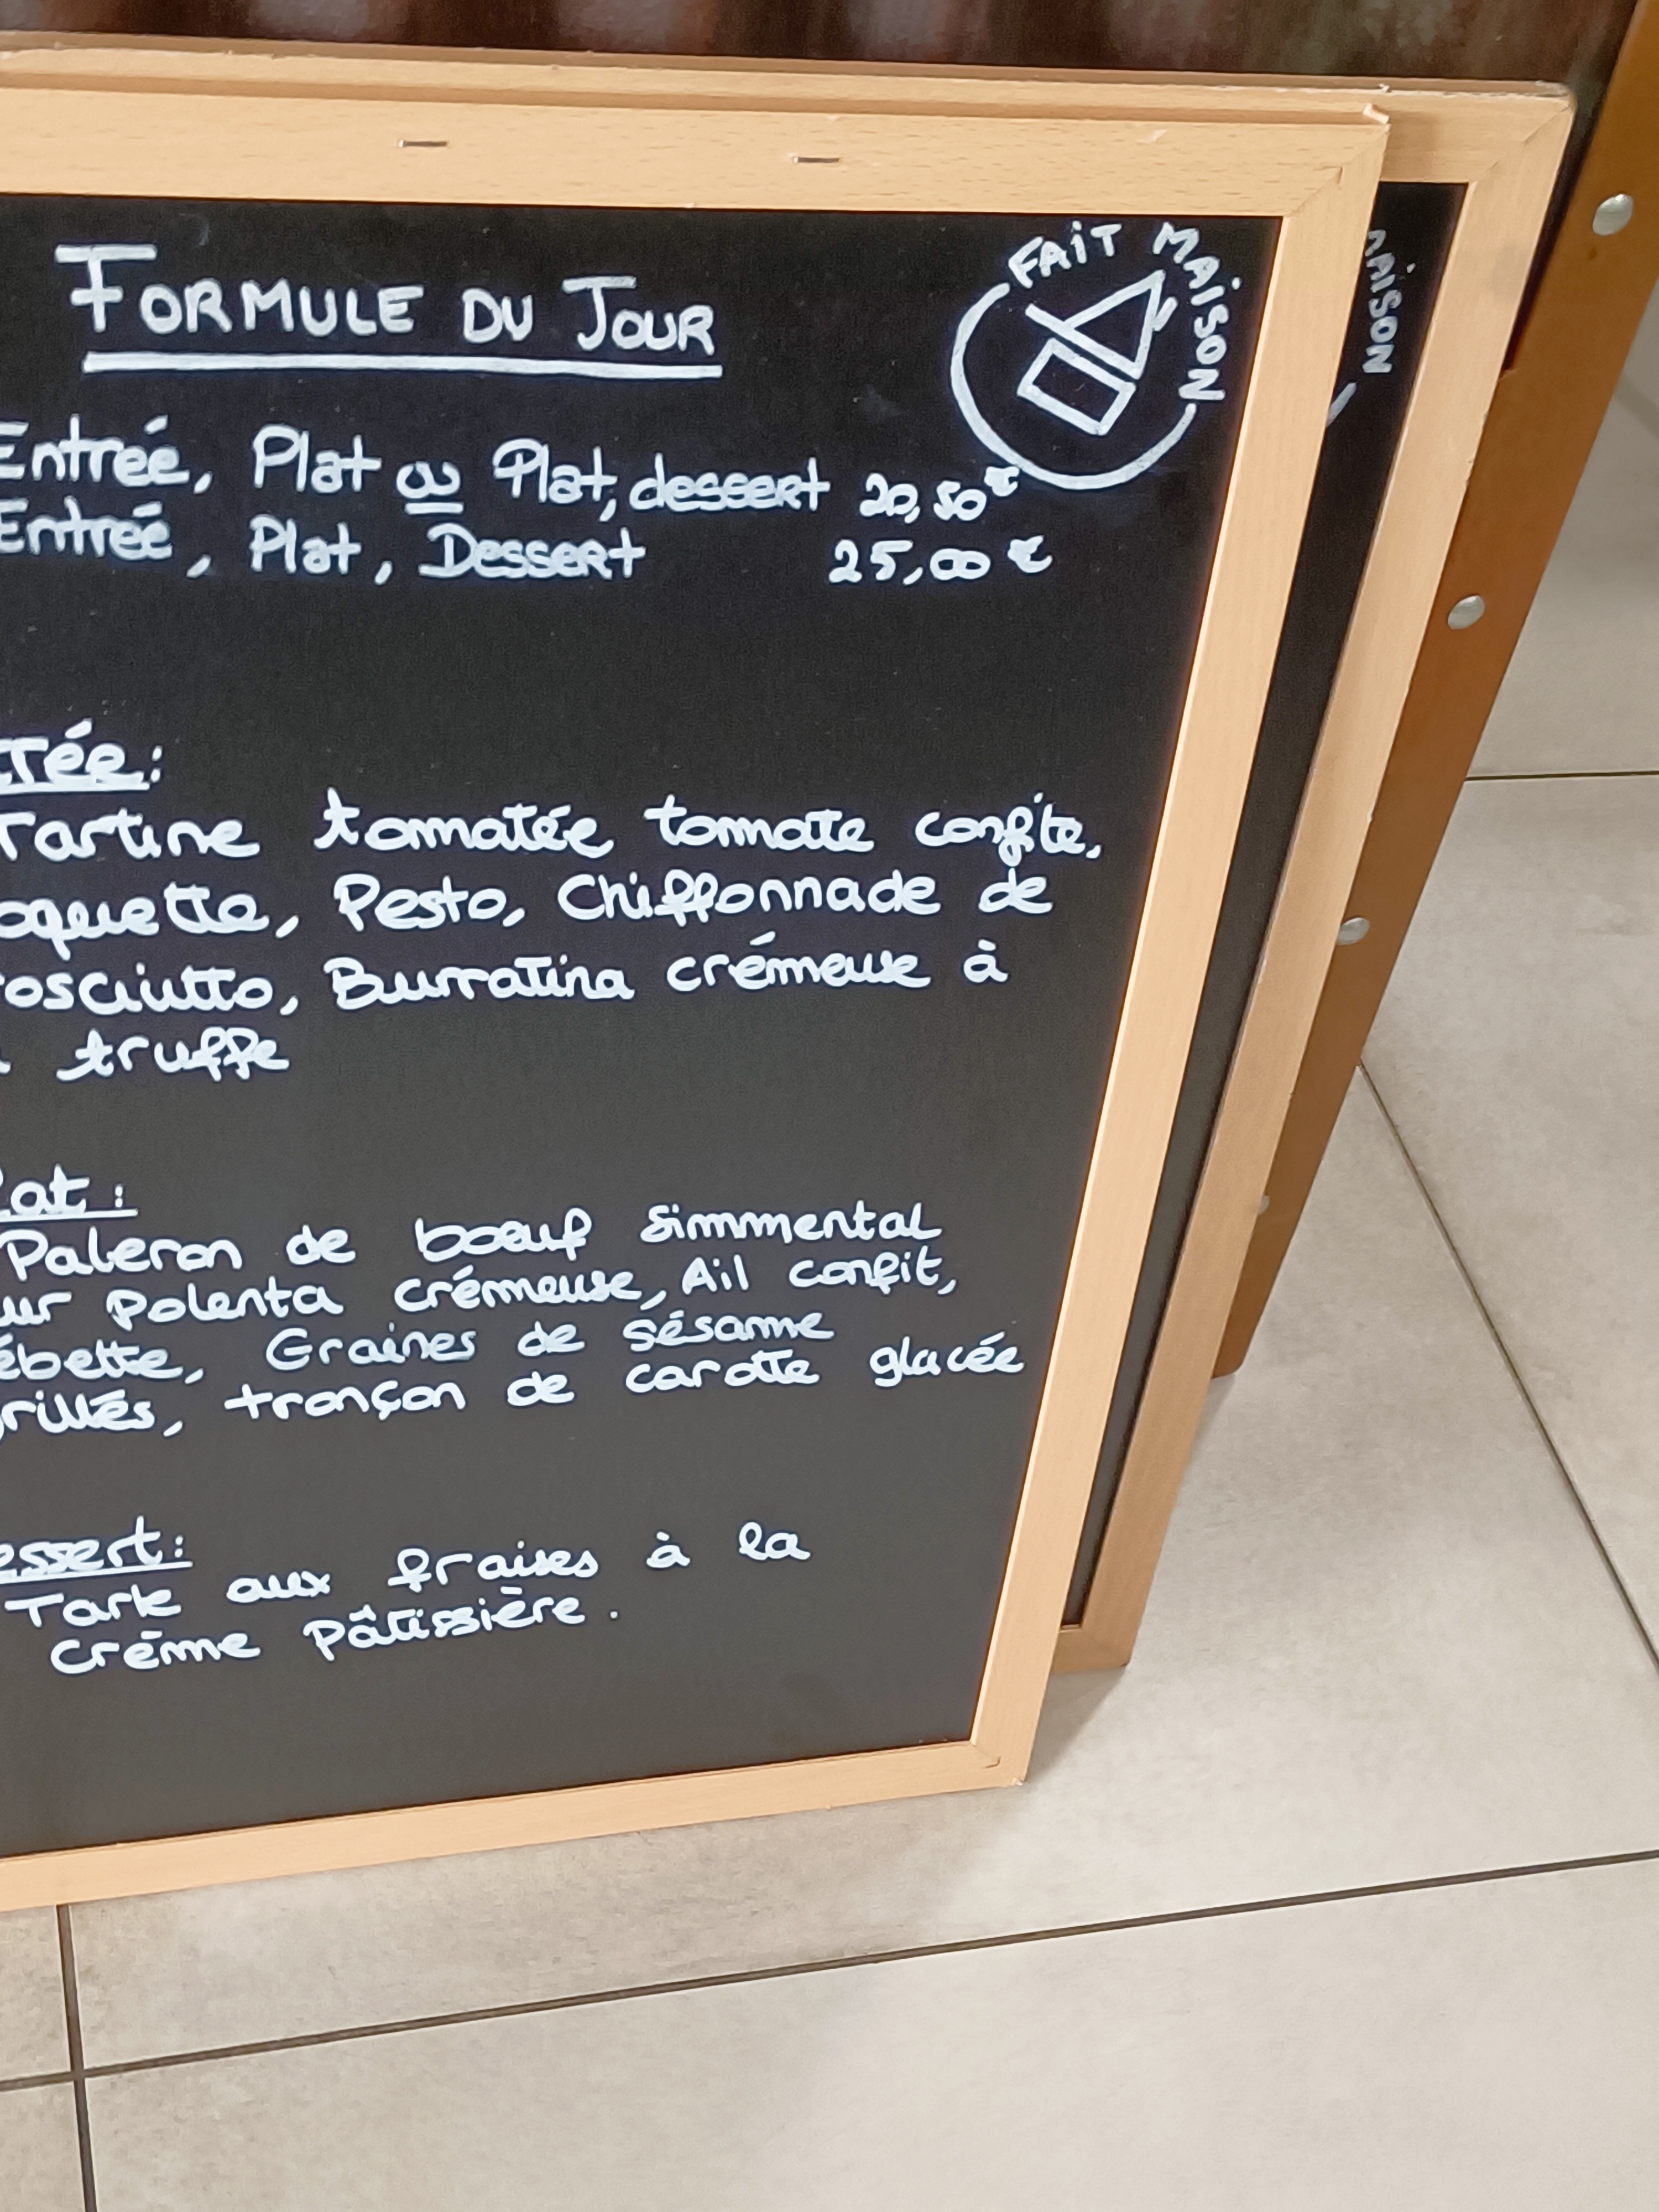 FORMULE DU JOUR
FAIT MAISON
MAISON
Entrée, Plat ou Plat, dessert 20,50€
Entrée, Plat, Dessert 25,00 €
trée:
Tartine tomatée tomate confite,
oquette, Pesto, Chiffonnade de
rosciutto, Burratina crémeuse à
truffe
lat:
Paleron de bœuf Simmental
ur polenta crémeuse, Ail confit,
ébette, Graines de sésame
rillés, tronçon de carotte glacée
essert:
Tarte aux fraises à la
Crème Pâtissière.